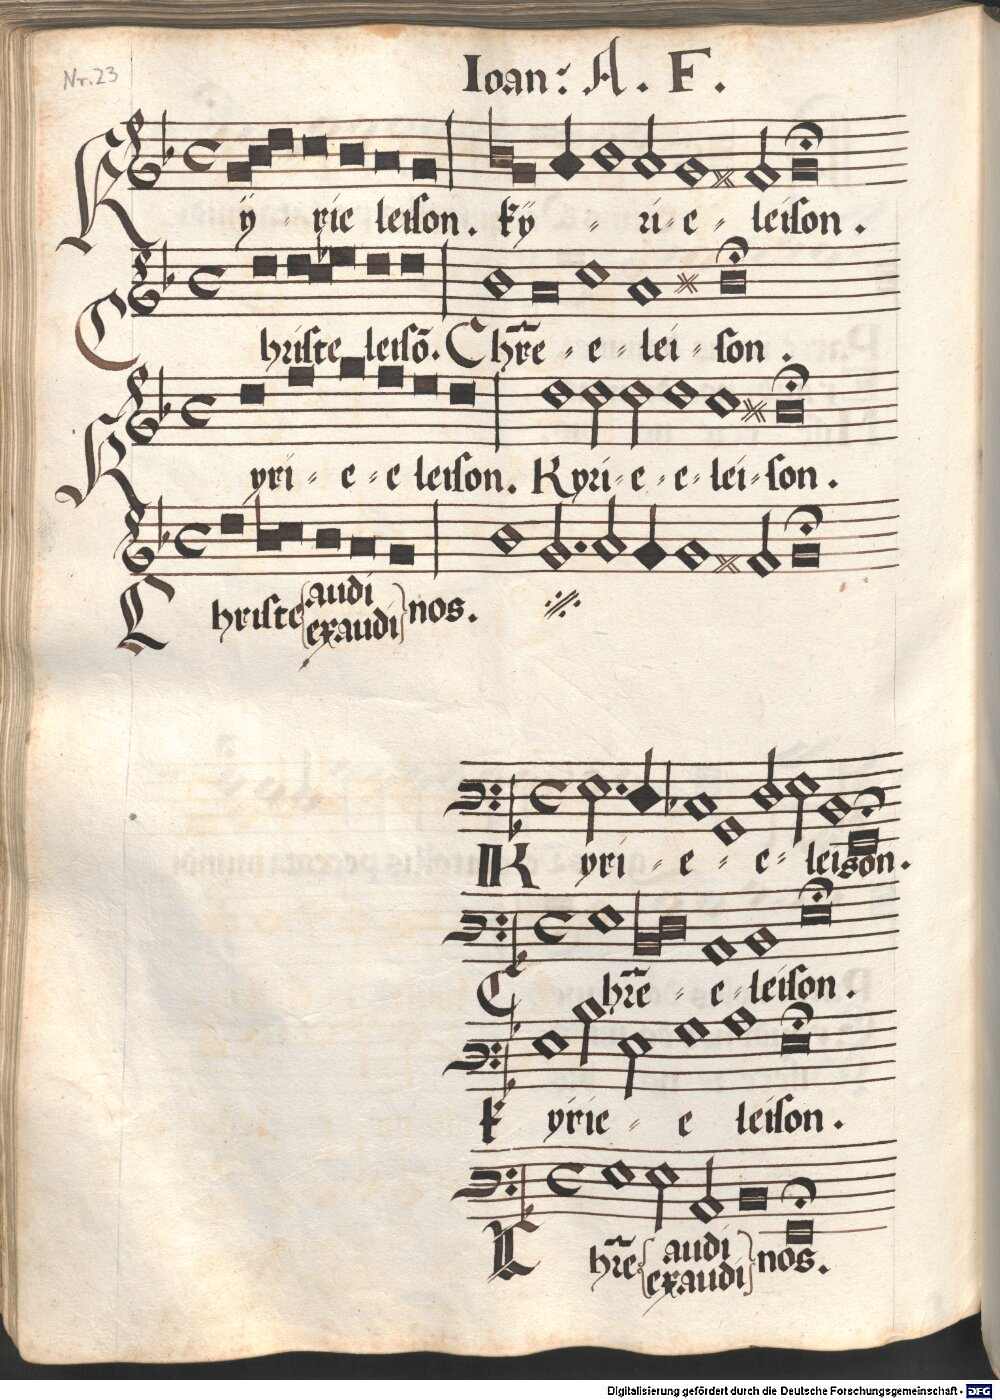 Nr. 23
Ioan: A. F.
Ky - rie leison. Ky - ri - e - leison.
Christe leisõ. Chr̃e - e - lei - son.
Kyri - e - e leison. Kyri - e - e - lei - son.
Christe {audi exaudi} nos. ·//·
Kyri - e - e - leison.
Chr̃e - e - leison.
kyrie - e leison.
Chr̃e {audi exaudi} nos.
Digitalisierung gefördert durch die Deutsche Forschungsgemeinschaft - DFG